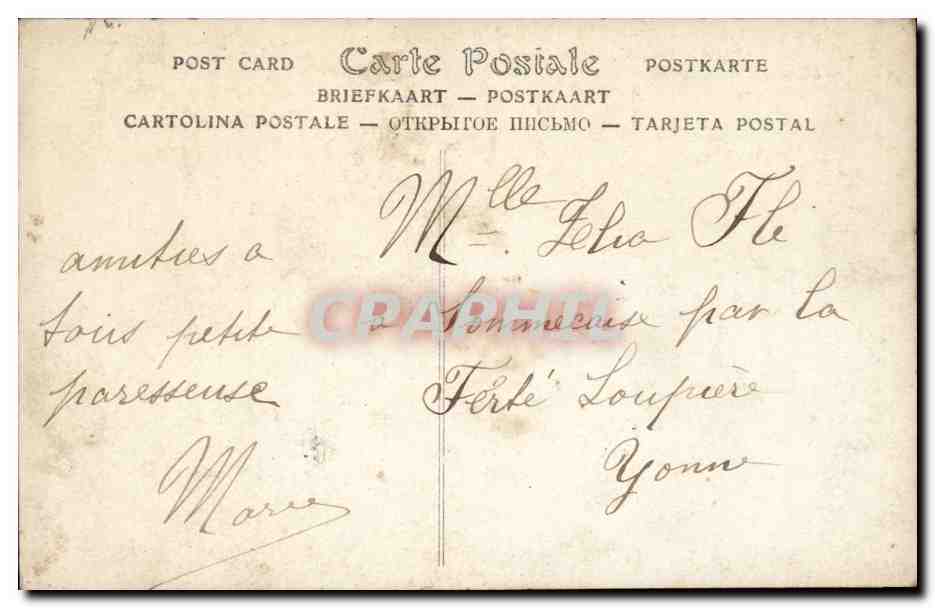 POST CARD Carte Postale POSTKARTE
BRIEFKAART — POSTKAART
CARTOLINA POSTALE — ОТКРЫТОЕ ПИСЬМО — TARJETA POSTAL
amities a
tous petite
paresseuse
Marie
Mlle Zelia Flé
a Sommecaise par la
Ferté Loupière
Yonne
CPARHTL